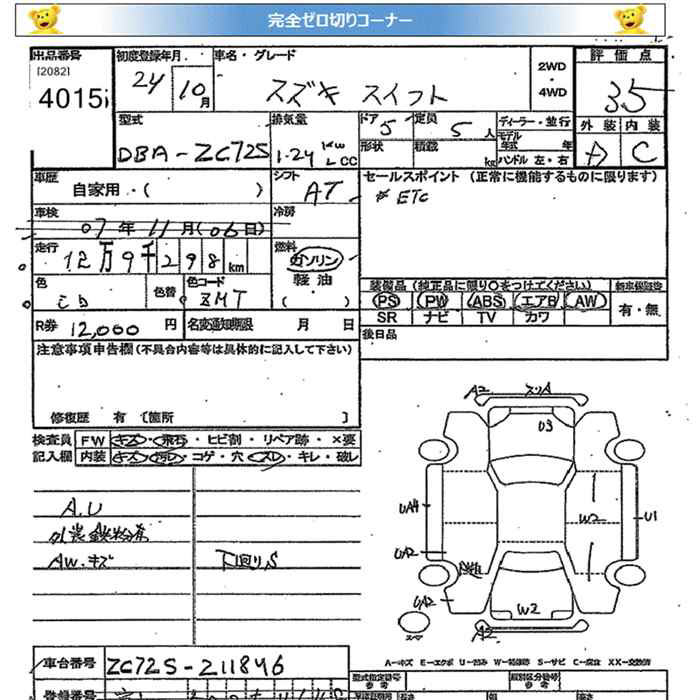 完全ゼロ切りコーナー
出品番号 初度登録年月 車名・グレード 評価点
[2082]
4015
24 10月 スズキ スイフト 2WD・4WD 3.5
型式 排気量 ドア 定員 ディーラー・並行 外装 内装
5 5人 モデル年式 年
DBA-ZC72S 1.24 KW L CC 形状 積載 kg ハンドル 左・右 D C
車歴 シフト セールスポイント (正常に機能するものに限ります)
自家用・( ) AT ETC
車検 冷房
07年11月(06日)
走行 燃料
12万9千298km ガソリン
軽油
色 色替 色コード ( ) 装備品 (純正品に限り○をつけてください) 新車保証書
ZMT PS PW ABS エアB AW 有・無
SR ナビ TV カワ
R券 12,000円 名変通知期限 月 日 後日品
注意事項申告欄(不具合内容等は具体的に記入して下さい)
修復歴 有 [箇所 ]
検査員 FW キズ・飛石・ヒビ割・リペア跡・×要
記入欄 内装 キズ・汚れ・コゲ・穴・スレ・キレ・破レ
A2 スリA
U3
A.U
外装鉄粉有
AW.キズ 下回りS
UA4 W2 U1
UA2
UA2 W2
A2
A-キズ E-エクボ U-凹み W-補修跡 S-サビ C-腐食 XX-交換済
車台番号 ZC72S-211846
型式指定番号 類別区分番号
参考 参考
登録番号